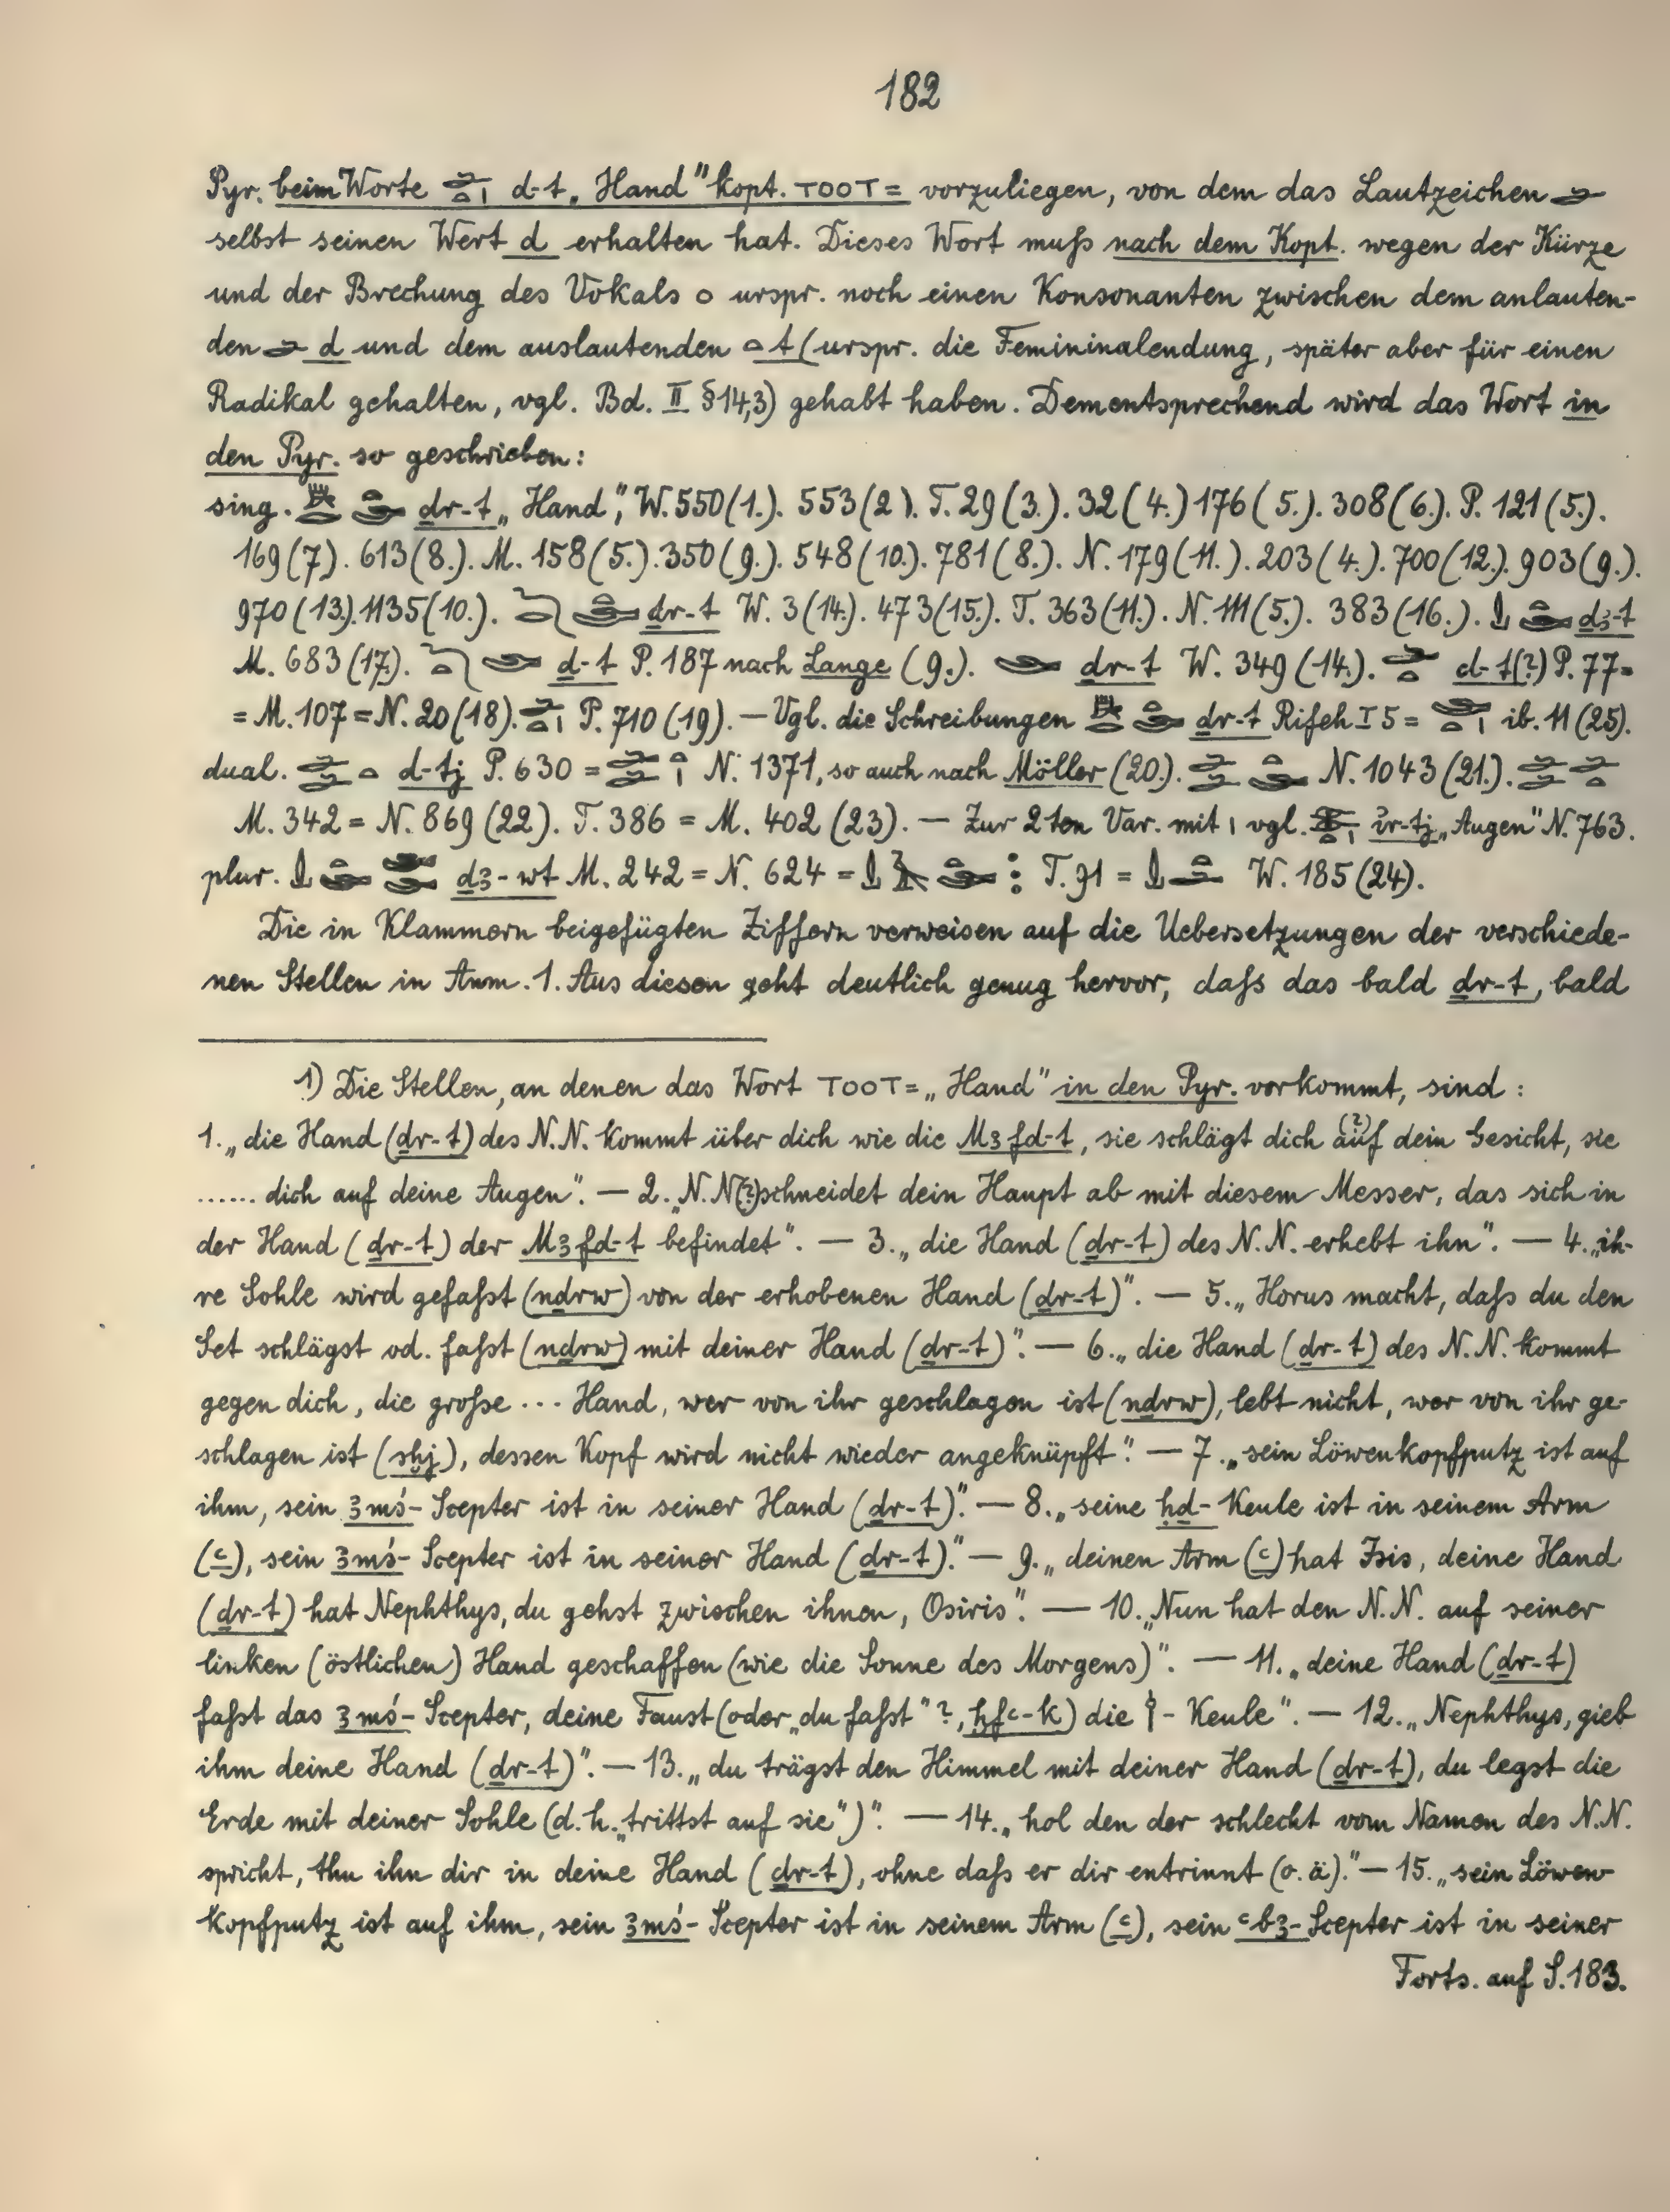 182
Pyr. beim Worte 𓂧𓏏𓏤 d-t „Hand" kopt. ⲦⲞⲞⲦ= vorzuliegen, von dem das Lautzeichen 𓂧
selbst seinen Wert d erhalten hat. Dieses Wort muſs nach dem Kopt. wegen der Kürze
und der Brechung des Vokals o urspr. noch einen Konsonanten zwischen dem anlauten-
den 𓂧 d und dem auslautenden 𓏏 t (urspr. die Femininalendung, später aber für einen
Radikal gehalten, vgl. Bd. II § 14,3) gehabt haben. Dementsprechend wird das Wort in
den Pyr. so geschrieben:
sing. ḏr-t „Hand", W. 550 (1.). 553 (2). T. 29 (3.). 32 (4.) 176 (5.). 308 (6.). P. 121 (5.).
169 (7). 613 (8.). M. 158 (5.). 350 (9.). 548 (10.). 781 (8.). N. 179 (11.). 203 (4.). 700 (12.). 903 (9.).
970 (13.). 1135 (10.). ḏr-t W. 3 (14.). 473 (15.). T. 363 (11.). N. 111 (5.). 383 (16.). ḏꜣ-t
M. 683 (17.). d-t P. 187 nach Lange (9.). ḏr-t W. 349 (14.). 𓂧𓏏 d-t (?) P. 77 =
= M. 107 = N. 20 (18). 𓂧𓏏𓏤 P. 710 (19). — Vgl. die Schreibungen ḏr-t Rifeh I 5 = ib. 11 (25).
dual. d-tj P. 630 = N. 1371, so auch nach Möller (20.). N. 1043 (21.).
M. 342 = N. 869 (22). T. 386 = M. 402 (23). — Zur 2ten Var. mit 𓏤 vgl. ỉr-tj „Augen" N. 763.
plur. ḏꜣ-wt M. 242 = N. 624 = T. 91 = W. 185 (24).
Die in Klammern beigefügten Ziffern verweisen auf die Uebersetzungen der verschiede-
nen Stellen in Anm. 1. Aus diesen geht deutlich genug hervor, daſs das bald ḏr-t, bald
1) Die Stellen, an denen das Wort ⲦⲞⲞⲦ= „Hand" in den Pyr. vorkommt, sind:
1. „die Hand (ḏr-t) des N.N. kommt über dich wie die Mꜣfd-t, sie schlägt dich auf (?) dein Gesicht, sie
...... dich auf deine Augen". — 2. „N.N (?) schneidet dein Haupt ab mit diesem Messer, das sich in
der Hand (ḏr-t) der Mꜣfd-t befindet". — 3. „die Hand (ḏr-t) des N.N. erhebt ihn". — 4. „ih-
re Sohle wird gefaſst (nḏrw) von der erhobenen Hand (ḏr-t)". — 5. „Horus macht, daſs du den
Set schlägst od. faſst (nḏrw) mit deiner Hand (ḏr-t)". — 6. „die Hand (ḏr-t) des N.N. kommt
gegen dich, die groſse ... Hand, wer von ihr geschlagen ist (nḏrw), lebt nicht, wer von ihr ge-
schlagen ist (sḫj), dessen Kopf wird nicht wieder angeknüpft". — 7. „sein Löwenkopfputz ist auf
ihm, sein ꜣmś-Scepter ist in seiner Hand (ḏr-t)". — 8. „seine ḥḏ-Keule ist in seinem Arm
(ꜥ), sein ꜣmś-Scepter ist in seiner Hand (ḏr-t)." — 9. „deinen Arm (ꜥ) hat Isis, deine Hand
(ḏr-t) hat Nephthys, du gehst zwischen ihnen, Osiris". — 10. „Nun hat den N.N. auf seiner
linken (östlichen) Hand geschaffen (wie die Sonne des Morgens)". — 11. „deine Hand (ḏr-t)
faſst das ꜣmś-Scepter, deine Faust (oder „du faſst"?, ḫfꜥ-k) die 𓌉-Keule". — 12. „Nephthys, gieb
ihm deine Hand (ḏr-t)". — 13. „du trägst den Himmel mit deiner Hand (ḏr-t), du legst die
Erde mit deiner Sohle (d. h. „trittst auf sie")". — 14. „hol den der schlecht vom Namen des N.N.
spricht, thu ihn dir in deine Hand (ḏr-t), ohne daſs er dir entrinnt (o. ä)." — 15. „sein Löwen-
kopfputz ist auf ihm, sein ꜣmś-Scepter ist in seinem Arm (ꜥ), sein ꜥbꜣ-Scepter ist in seiner
Forts. auf S. 183.